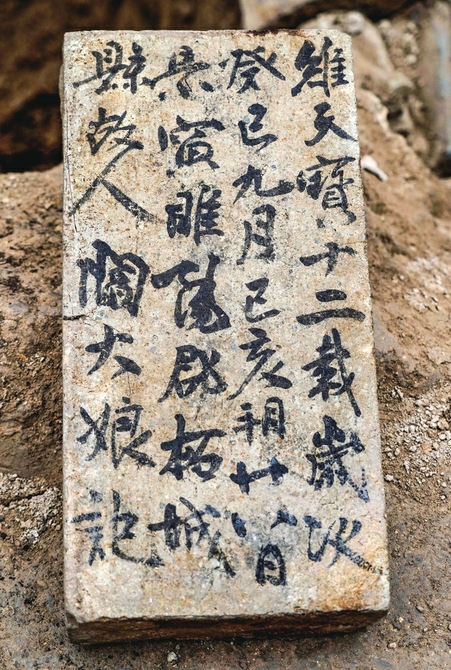 維天寶十二載歲次
癸巳九月己亥朔廿八日
景寅睢陽郡柘城
縣故人閻大娘記